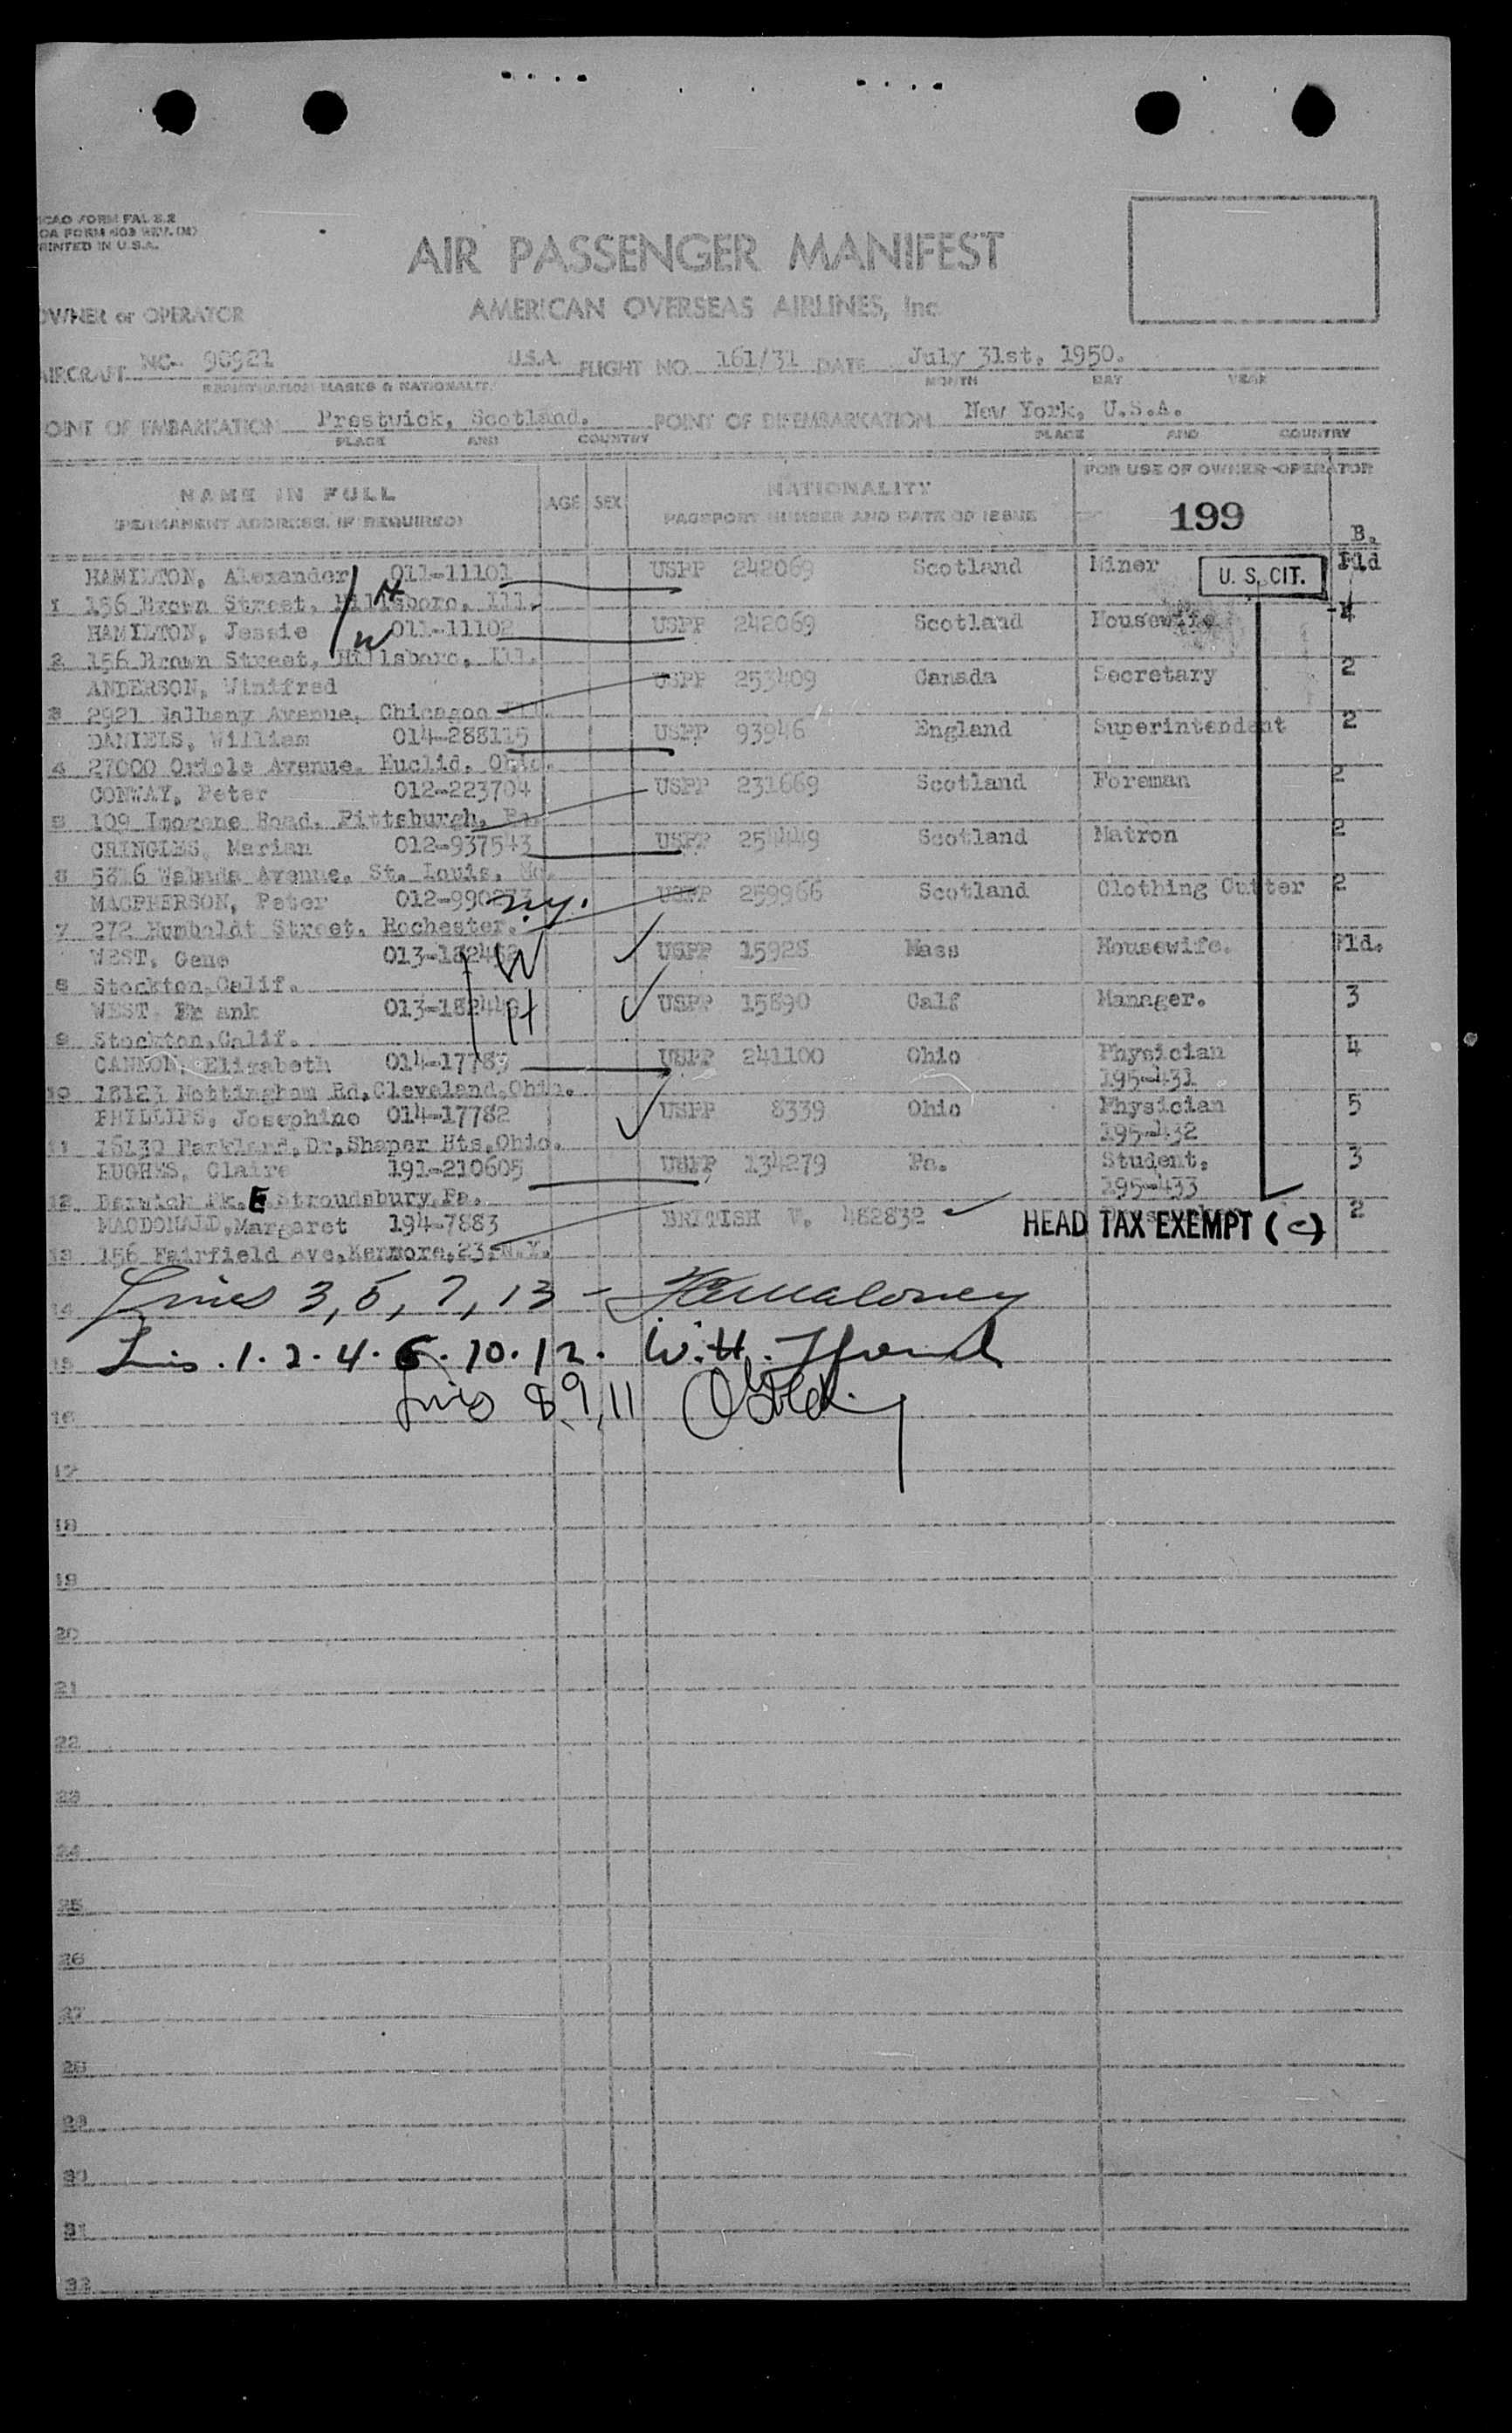 ICAO FORM FAL 2.2
OA FORM 403 REV. (M)
PRINTED IN U.S.A.
AIR PASSENGER MANIFEST
OWNER or OPERATOR AMERICAN OVERSEAS AIRLINES, Inc
AIRCRAFT NC- 90921 U.S.A. FLIGHT NO. 161/31 DATE July 31st, 1950.
REGISTRATION MARKS & NATIONALITY MONTH DAY YEAR
POINT OF EMBARKATION Prestwick, Scotland. POINT OF DISEMBARKATION New York, U.S.A.
PLACE AND COUNTRY PLACE AND COUNTRY
NAME IN FULL AGE SEX NATIONALITY FOR USE OF OWNER-OPERATOR
(PERMANENT ADDRESS, IF REQUIRED) PASSPORT NUMBER AND DATE OF ISSUE 199
B.
HAMILTON, Alexander 011-11101 USPP 242069 Scotland Miner U.S. CIT. Pld
1 156 Brown Street, Hillsboro, Ill. H
HAMILTON, Jessie 011-11102 USPP 242069 Scotland Housewife 4
2 156 Brown Street, Hillsboro, Ill. W
ANDERSON, Winifred USPP 253409 Canada Secretary 2
3 2921 Avenue, Chicagoo
DANIELS, William 014-288115 USPP 93946 England Superintendent 2
4 27000 Oriole Avenue, Euclid, Ohio.
CONWAY, Peter 012-223704 USPP 231669 Scotland Foreman 2
5 109 Imogene Road, Pittsburgh, Pa.
CRINGLES, Marian 012-937543 USPP 254449 Scotland Matron 2
6 5816 Wabada Avenue, St. Louis, Mo.
MACPHERSON, Peter 012-990 USPP 259966 Scotland Clothing Cutter 2
7 272 Humboldt Street, Rochester. n.y.
WEST, Gene 013-182 W USPP 15928 Mass Housewife. Pld.
8 Stockton,Calif.
WEST Fr ank 013-182 H USPP 15890 Calf Manager. 3
9 Stockton,Calif.
CANNON, Elizabeth 014-17783 USPP 241100 Ohio Physician 4
195-431
10 18123 Nottingham Rd,Cleveland,Ohio.
PHILLIPS, Josephine 014-17782 USPP 8339 Ohio Physician 5
195-432
11 16130 Parkland,Dr,Shaper Hts,Ohio.
HUGHES, Claire 191-210605 USPP 134279 Pa. Student, 3
195-433
12 Berwick Pk. E Stroudsbury,Pa.
MACDONALD,Margaret 194-7883 BRITISH V. 482832 HEAD TAX EXEMPT (c) 2
13 156 Fairfield Ave,Kenmore,23,N.Y.
14 Lines 3, 5, 7, 13 -
15 Lis. 1. 2. 4. 6. 10. 12. W.H.
16 Lines 8, 9, 11
17
18
19
20
21
22
23
24
25
26
27
28
29
30
31
32